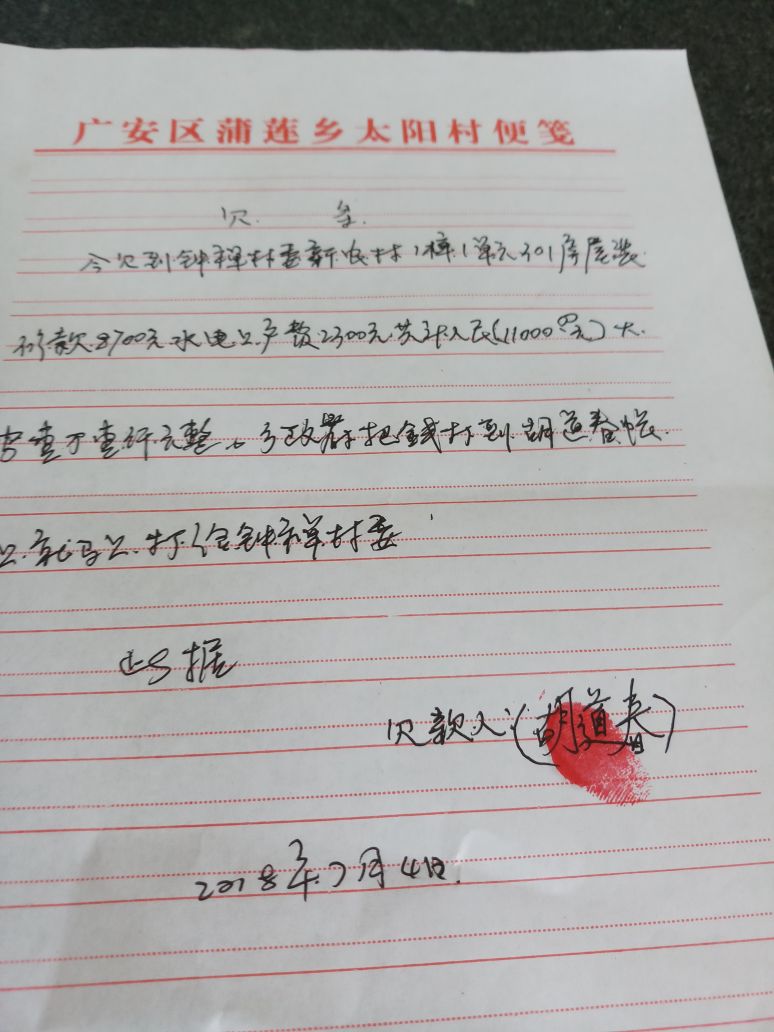 广安区蒲莲乡太阳村便笺
欠 条
今欠到钟禅村委新农村1幢1单元301房屋装
修款8700元水电上户费2300元共计人民(11000元)大
写壹万壹仟元整。乡政府把钱打到胡道春帐
上就马上打给钟禅村委
此据
欠款人:(胡道春)
2018年7月4日.